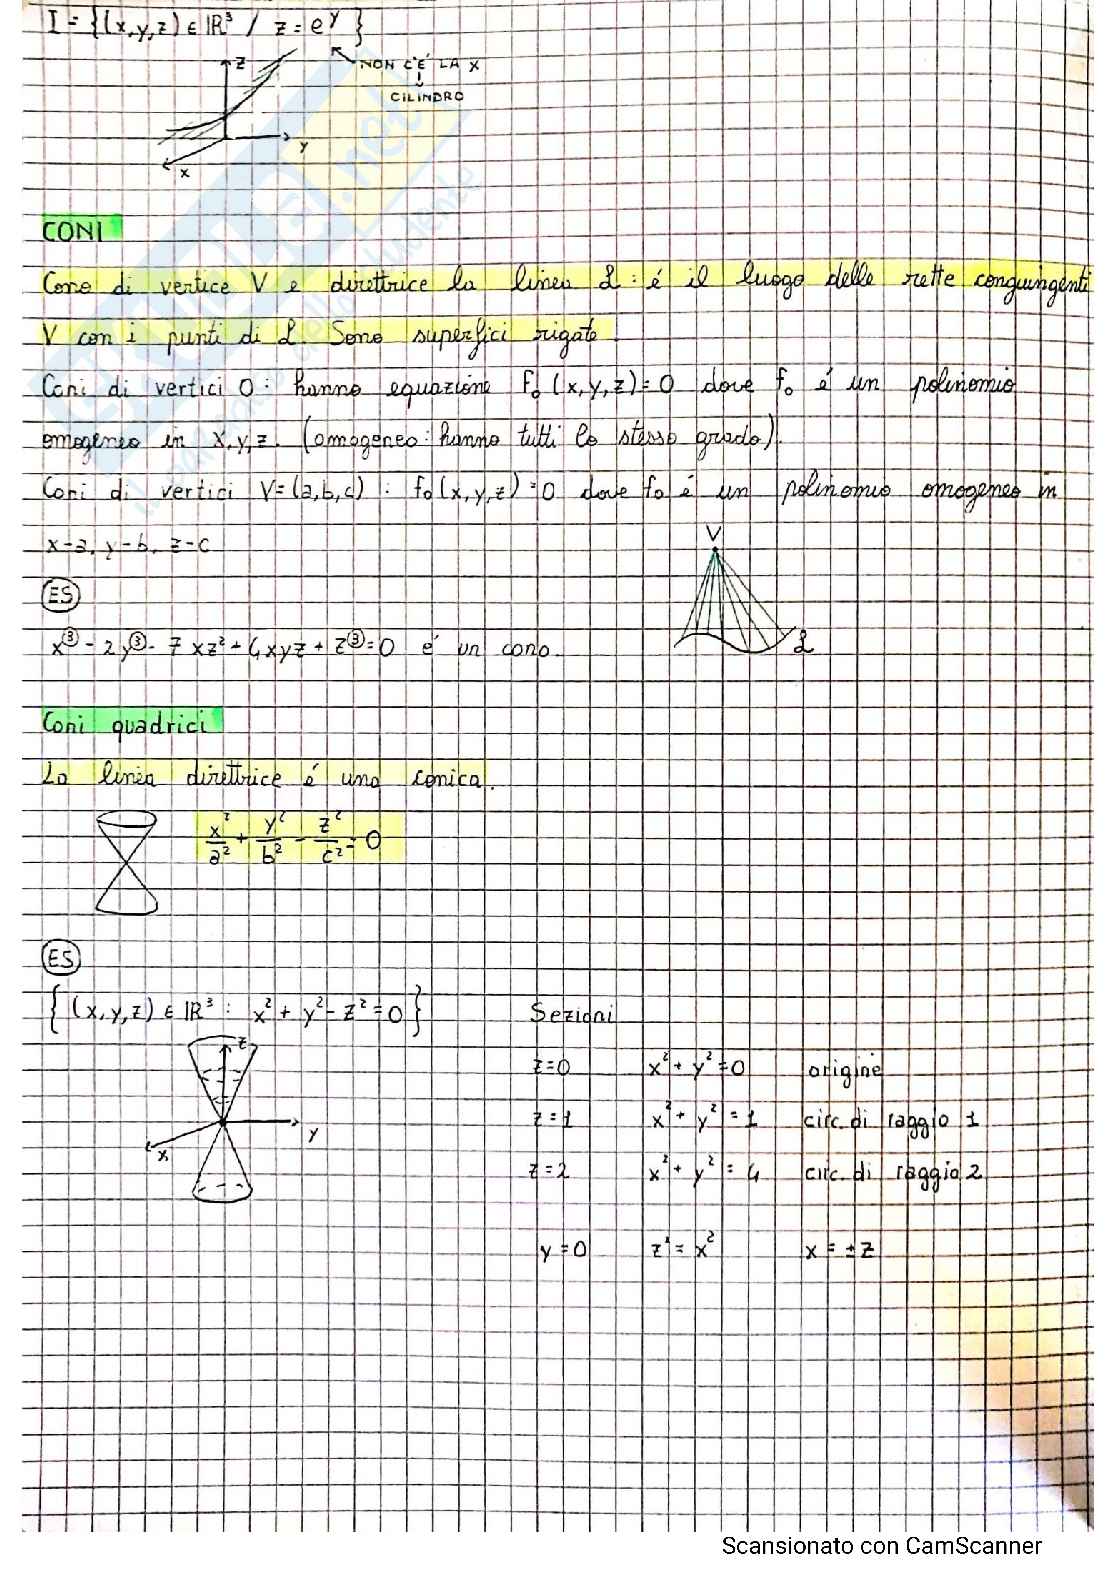 I = {(x,y,z) ∈ ℝ³ / z = e^y}
z
NON C'É LA X
↓
CILINDRO
y
x
CONI
Cono di vertice V e direttrice la linea L: é il luogo delle rette congiungenti
V con i punti di L. Sono superfici rigate.
Coni di vertici O: hanno equazione F₀(x,y,z)=0 dove f₀ é un polinomio
omogeneo in x,y,z. (omogeneo: hanno tutti lo stesso grado)
Coni di vertici V=(a,b,c) : f₀(x,y,z)=0 dove f₀ é un polinomio omogeneo in
x-a, y-b, z-c
V
ES
x³ - 2y³ - 7xz² + 4xyz + z³ = 0 é un cono.
L
Coni quadrici
La linea direttrice é una conica.
x²/a² + y²/b² - z²/c² = 0
ES
{(x,y,z) ∈ ℝ³ : x² + y² - z² = 0} Sezioni
z
z=0 x² + y² = 0 origine
z=1 x² + y² = 1 circ. di raggio 1
y
x
z=2 x² + y² = 4 circ. di raggio 2
y=0 z² = x² x = ±z
Scansionato con CamScanner